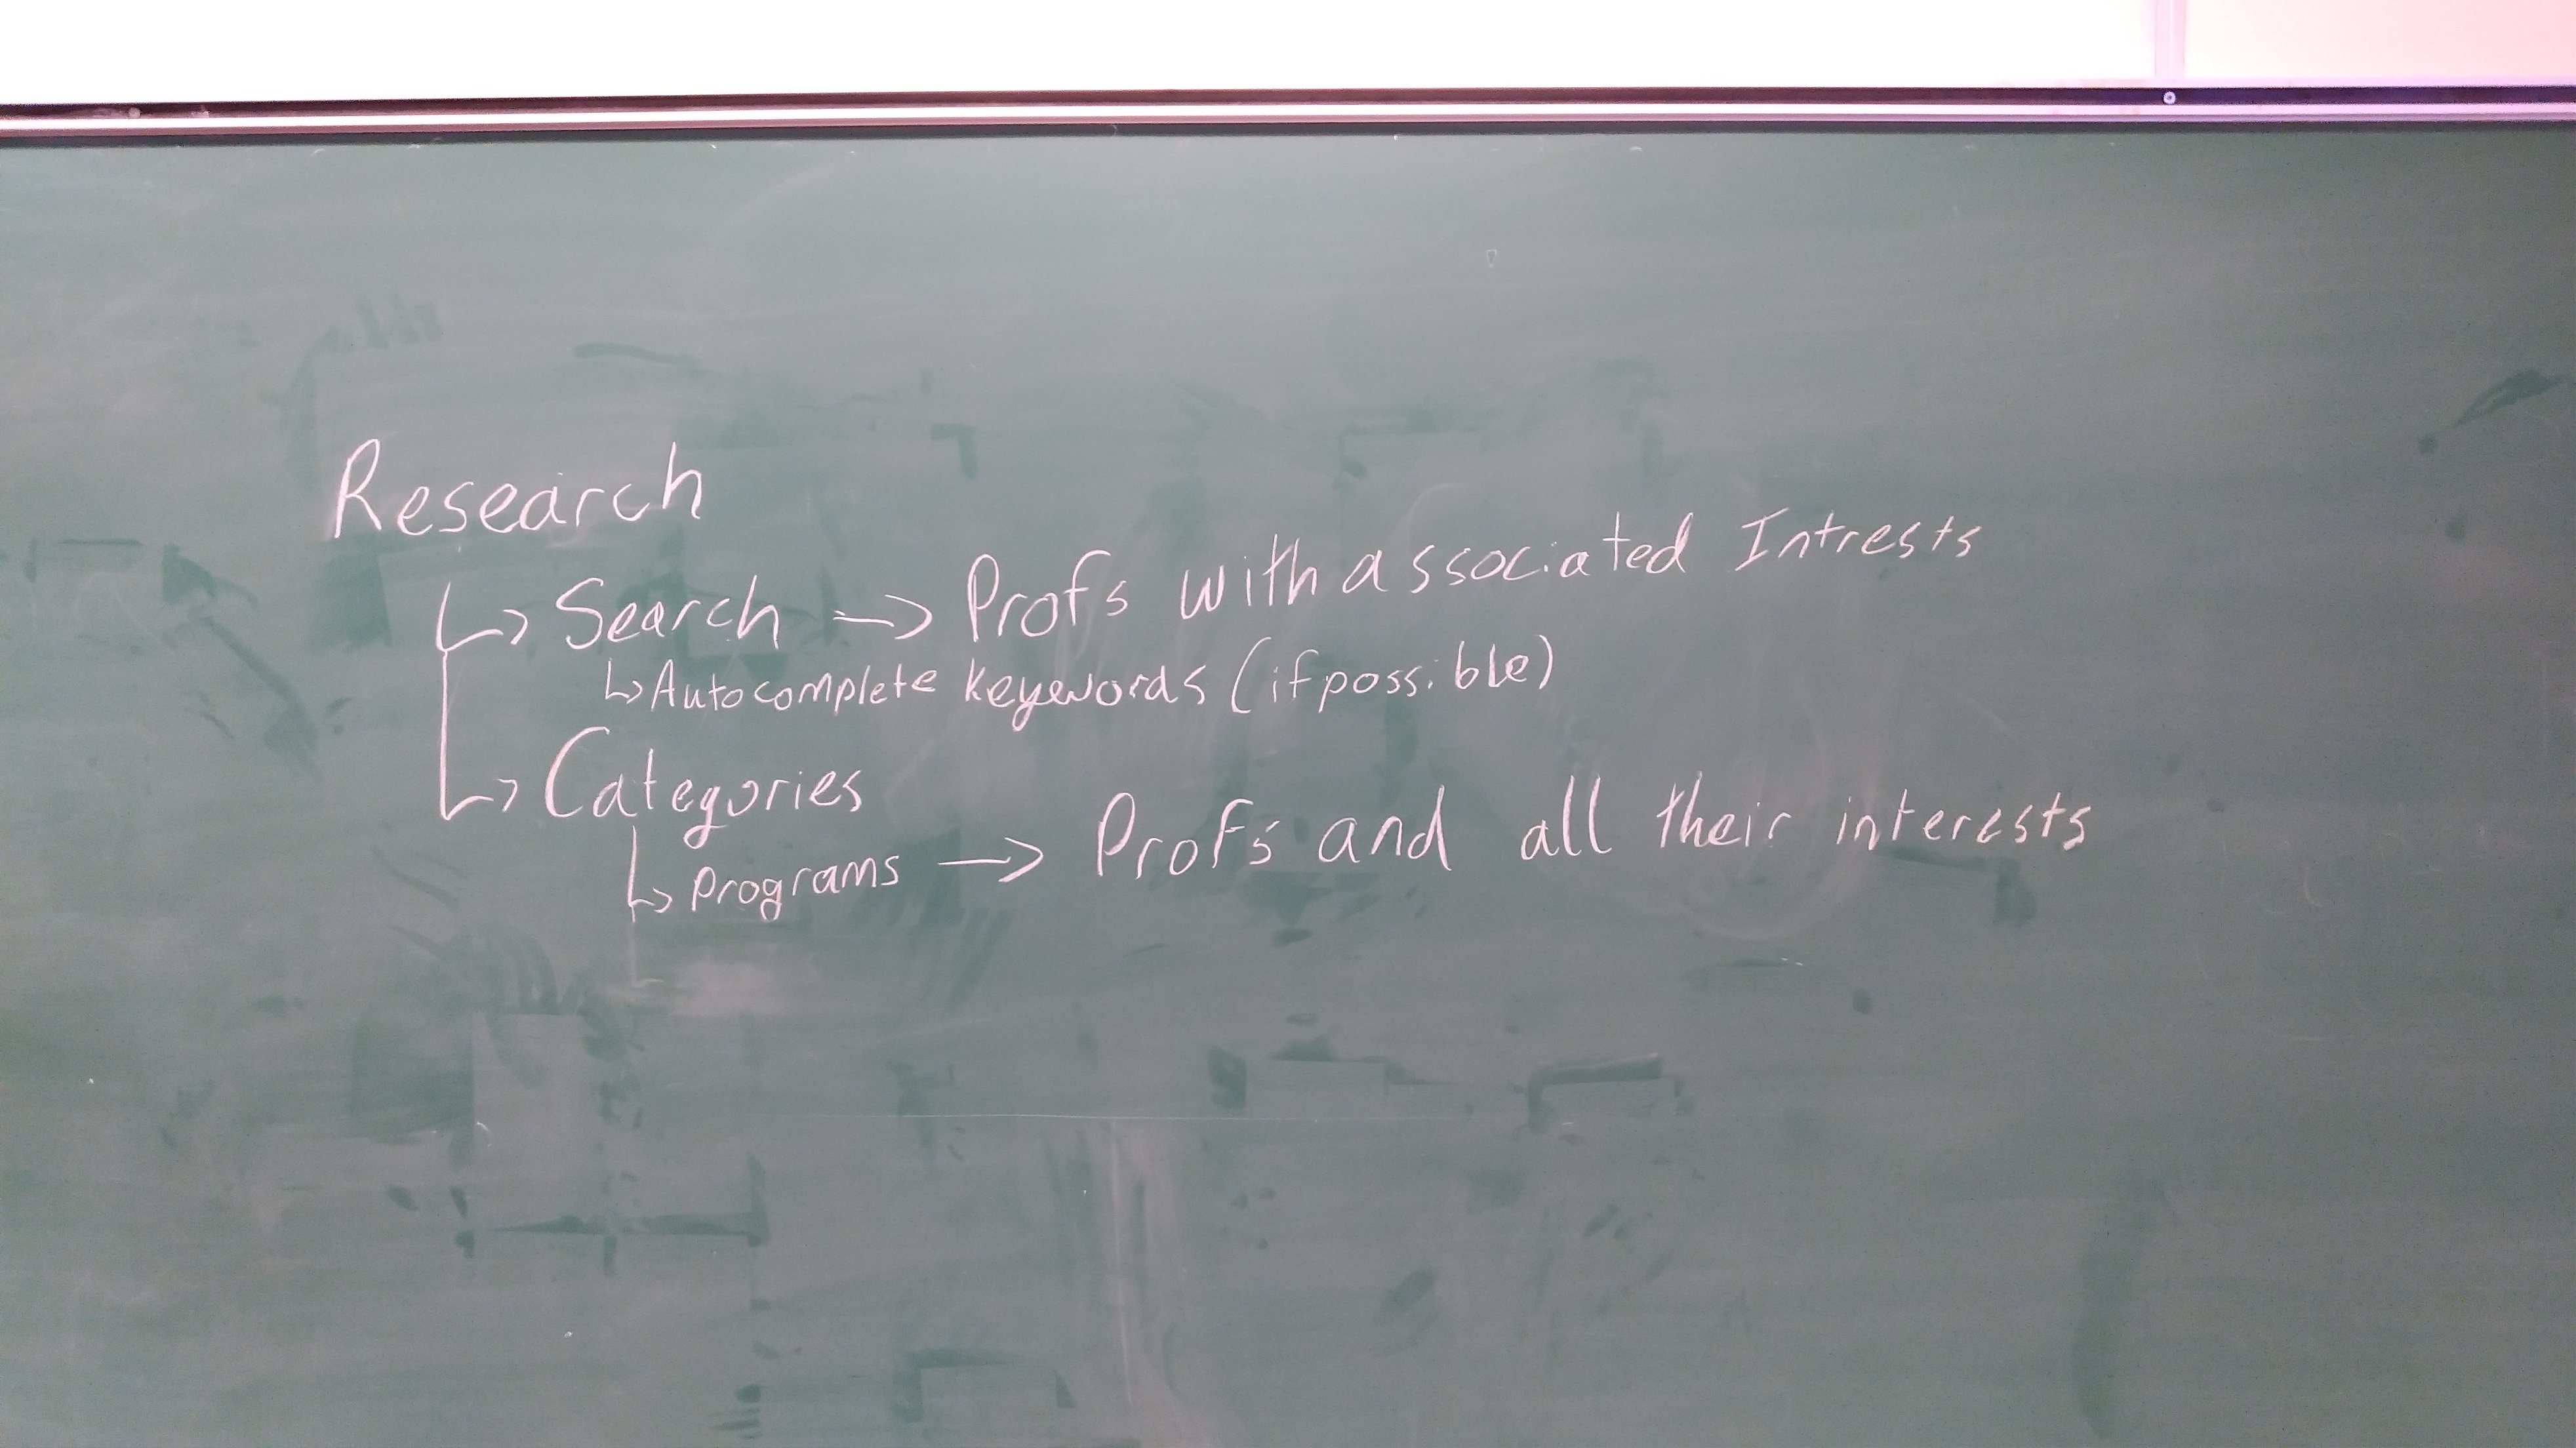 Research
↳ Search → Profs with associated Intrests
↳ Autocomplete keywords (if possible)
↳ Categories
↳ Programs → Profs and all their interests